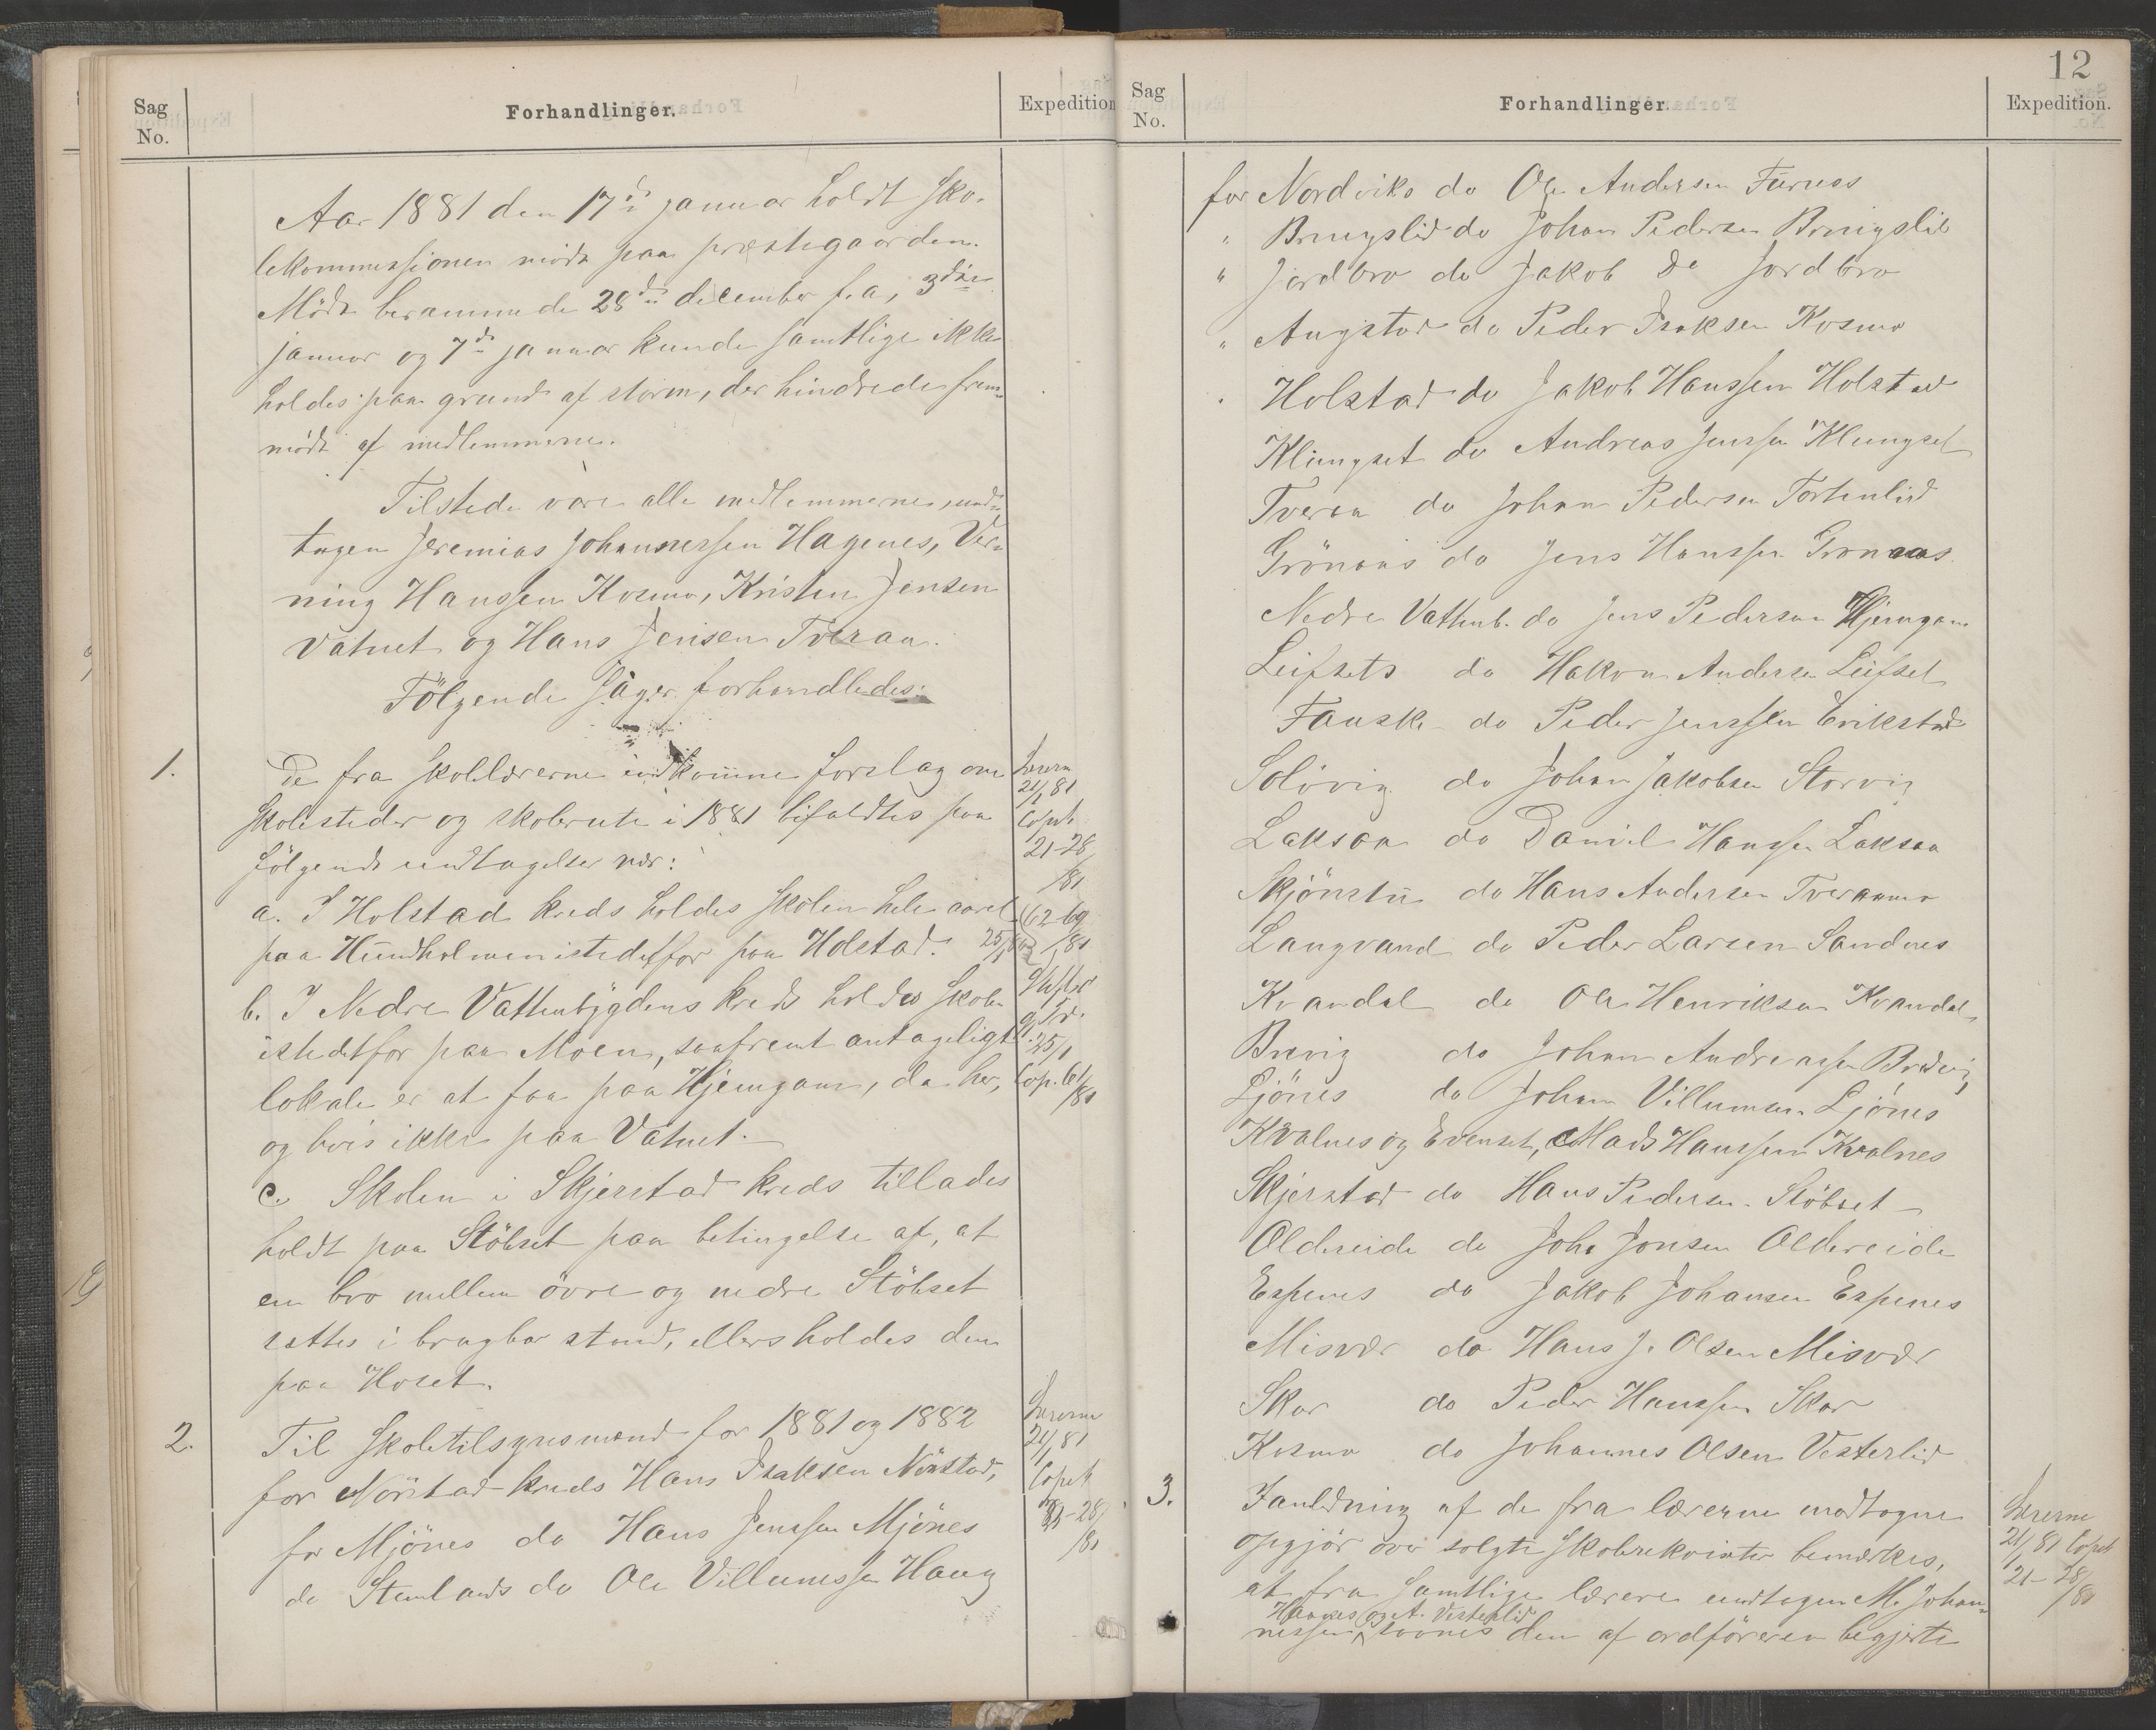 Sag
No.
Forhandlinger.
Expedition
Aar 1881 den 17de januar holdt sko-
lekommissionen möde paa præstegaarden.
Möde berammede 28de december f. a, 3die
januar og 7de januar kunde samtlige ikke
holdes paa grund af storm, der hindrede frem-
möde af medlemmerne.
Tilstede vare alle medlemmerne, und-
tagen Jeremias Johannessen Hagenes, Ver-
ning Hanssen Kosmo, Kristen Jensen
Vatnet og Hans Jensen Tveraa.
Fölgende sager forhandledes:
1.
De fra skolelærerne indkomne forslag om
skolesteder og skolerute i 1881 bifaldtes paa
fölgende undtagelser nær:
a. I Holstad kreds holdes skolen hele aaret
paa Hundholmen istedetfor paa Holstad. 25/1
b. I Nedre Vattenbygdens kreds holdes skolen
istedetfor paa Moen, saafremt antageligt
lokale er at faa paa Hjemgam, da her,
og hvis ikke paa Vatnet.
c. Skolen i Skjerstad kreds tillades
holdt paa Stöbset paa betingelse af, at
en bro mellem övre og nedre Stöbset
sættes i brugbar stand, ellers holdes den
paa Hoset.
Lærerne
21/1 81
Copeb
21-28
/81
62 69
/81
25/1
Cop. 61
/81
2.
Til skoletilsynsmænd for 1881 og 1882
for Nöistad kreds Hans Isaksen Nöistad,
for Mjönes do Hans Jenssen Mjönes
do Stemlands do Ole Villumssen Haug
Lærerne
21/1 81
Copeb
21-28
/81
12
Sag
No.
Forhandlinger.
Expedition.
for Nordviks do Ole Andersen Furnes
" Bringslid do Johan Pedersen Bringslid
" Jordbro do Jakob Do Jordbro
" Augstad do Peder Isaksen Kosmo
" Holstad do Jakob Hanssen Holstad
Klungset do Andreas Jenssen Klungset
Tveraa do Johan Pedersen Tortenlid
Grönaas do Jens Hanssen Grönaas
Nedre Vattenb. do Jens Pedersen Hjemgam
Leifsets do Hakon Andersen Leifset
Fauske do Peder Jenssen Erikstad
Solövig do Johan Jakobsen Storvig
Laksaa do Daniel Hanssen Laksaa
Skjönstu do Hans Andersen Tveraamo
Langvand do Peder Larsen Sandnes
Kvandal do Ole Henriksen Kvandal
Brevig do Johan Andreassen Bredvig
Ljönes do Johan Villumsen Ljönes
Kvalnes og Evenset, Mads Hanssen Kvalnes
Skjerstad do Hans Pedersen Stöbset
Oldereide do Johs Jonsen Oldereide
Espenes do Jakob Johansen Espenes
Misvær do Hans J. Olsen Misvær
Skar do Peder Hanssen Skar
Kosmo do Johannes Olsen Vesterlid
3.
I anledning af de fra lærerne modtagne
opgjör over solgte skolerekvisiter bemærkes,
at fra samtlige lærere undtagen M. Johan-
Haanes og A. Vesterlid
nessen savnes den af ordföreren begjærte
Lærerne
21/1 81 Copeb
21-28
/81